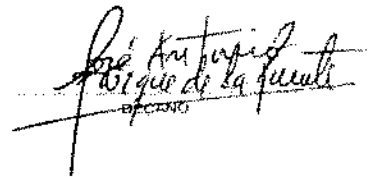 José Antonio
Vique de la Fuente
DECANO